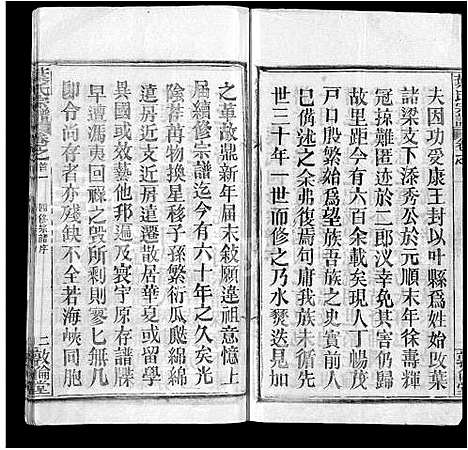 夫因功受康王封以叶縣爲姓始改葉
諸梁支下添秀公於元順末年徐壽輝
冠掠難匿迹於二郎汊幸免我族自
丁巳故址距今六百余載矣現人丁暢茂
戸口殷繁始爲望族吾族之史實前人
已備述之余弗復焉旬庸我族未循先
世三十年一世而修之乃水燹迭見
之革故鼎新年届末敘願違祖意憶上
届續修宗譜迄今有六十年之久矣光
陰荏苒物換星移子孫繁衍瓜瓞綿綿
遺房近支近房遷出散居華夏或留學
異國或飯藝他邦遍及寰宇原存譜牒
早遭馮夷回祿之毁所剩則寥乜無几
即令尚存者亦殘缺不全若海峽同胞
葉氏宗譜
卷之首
續修宗譜序
二
敦倫堂